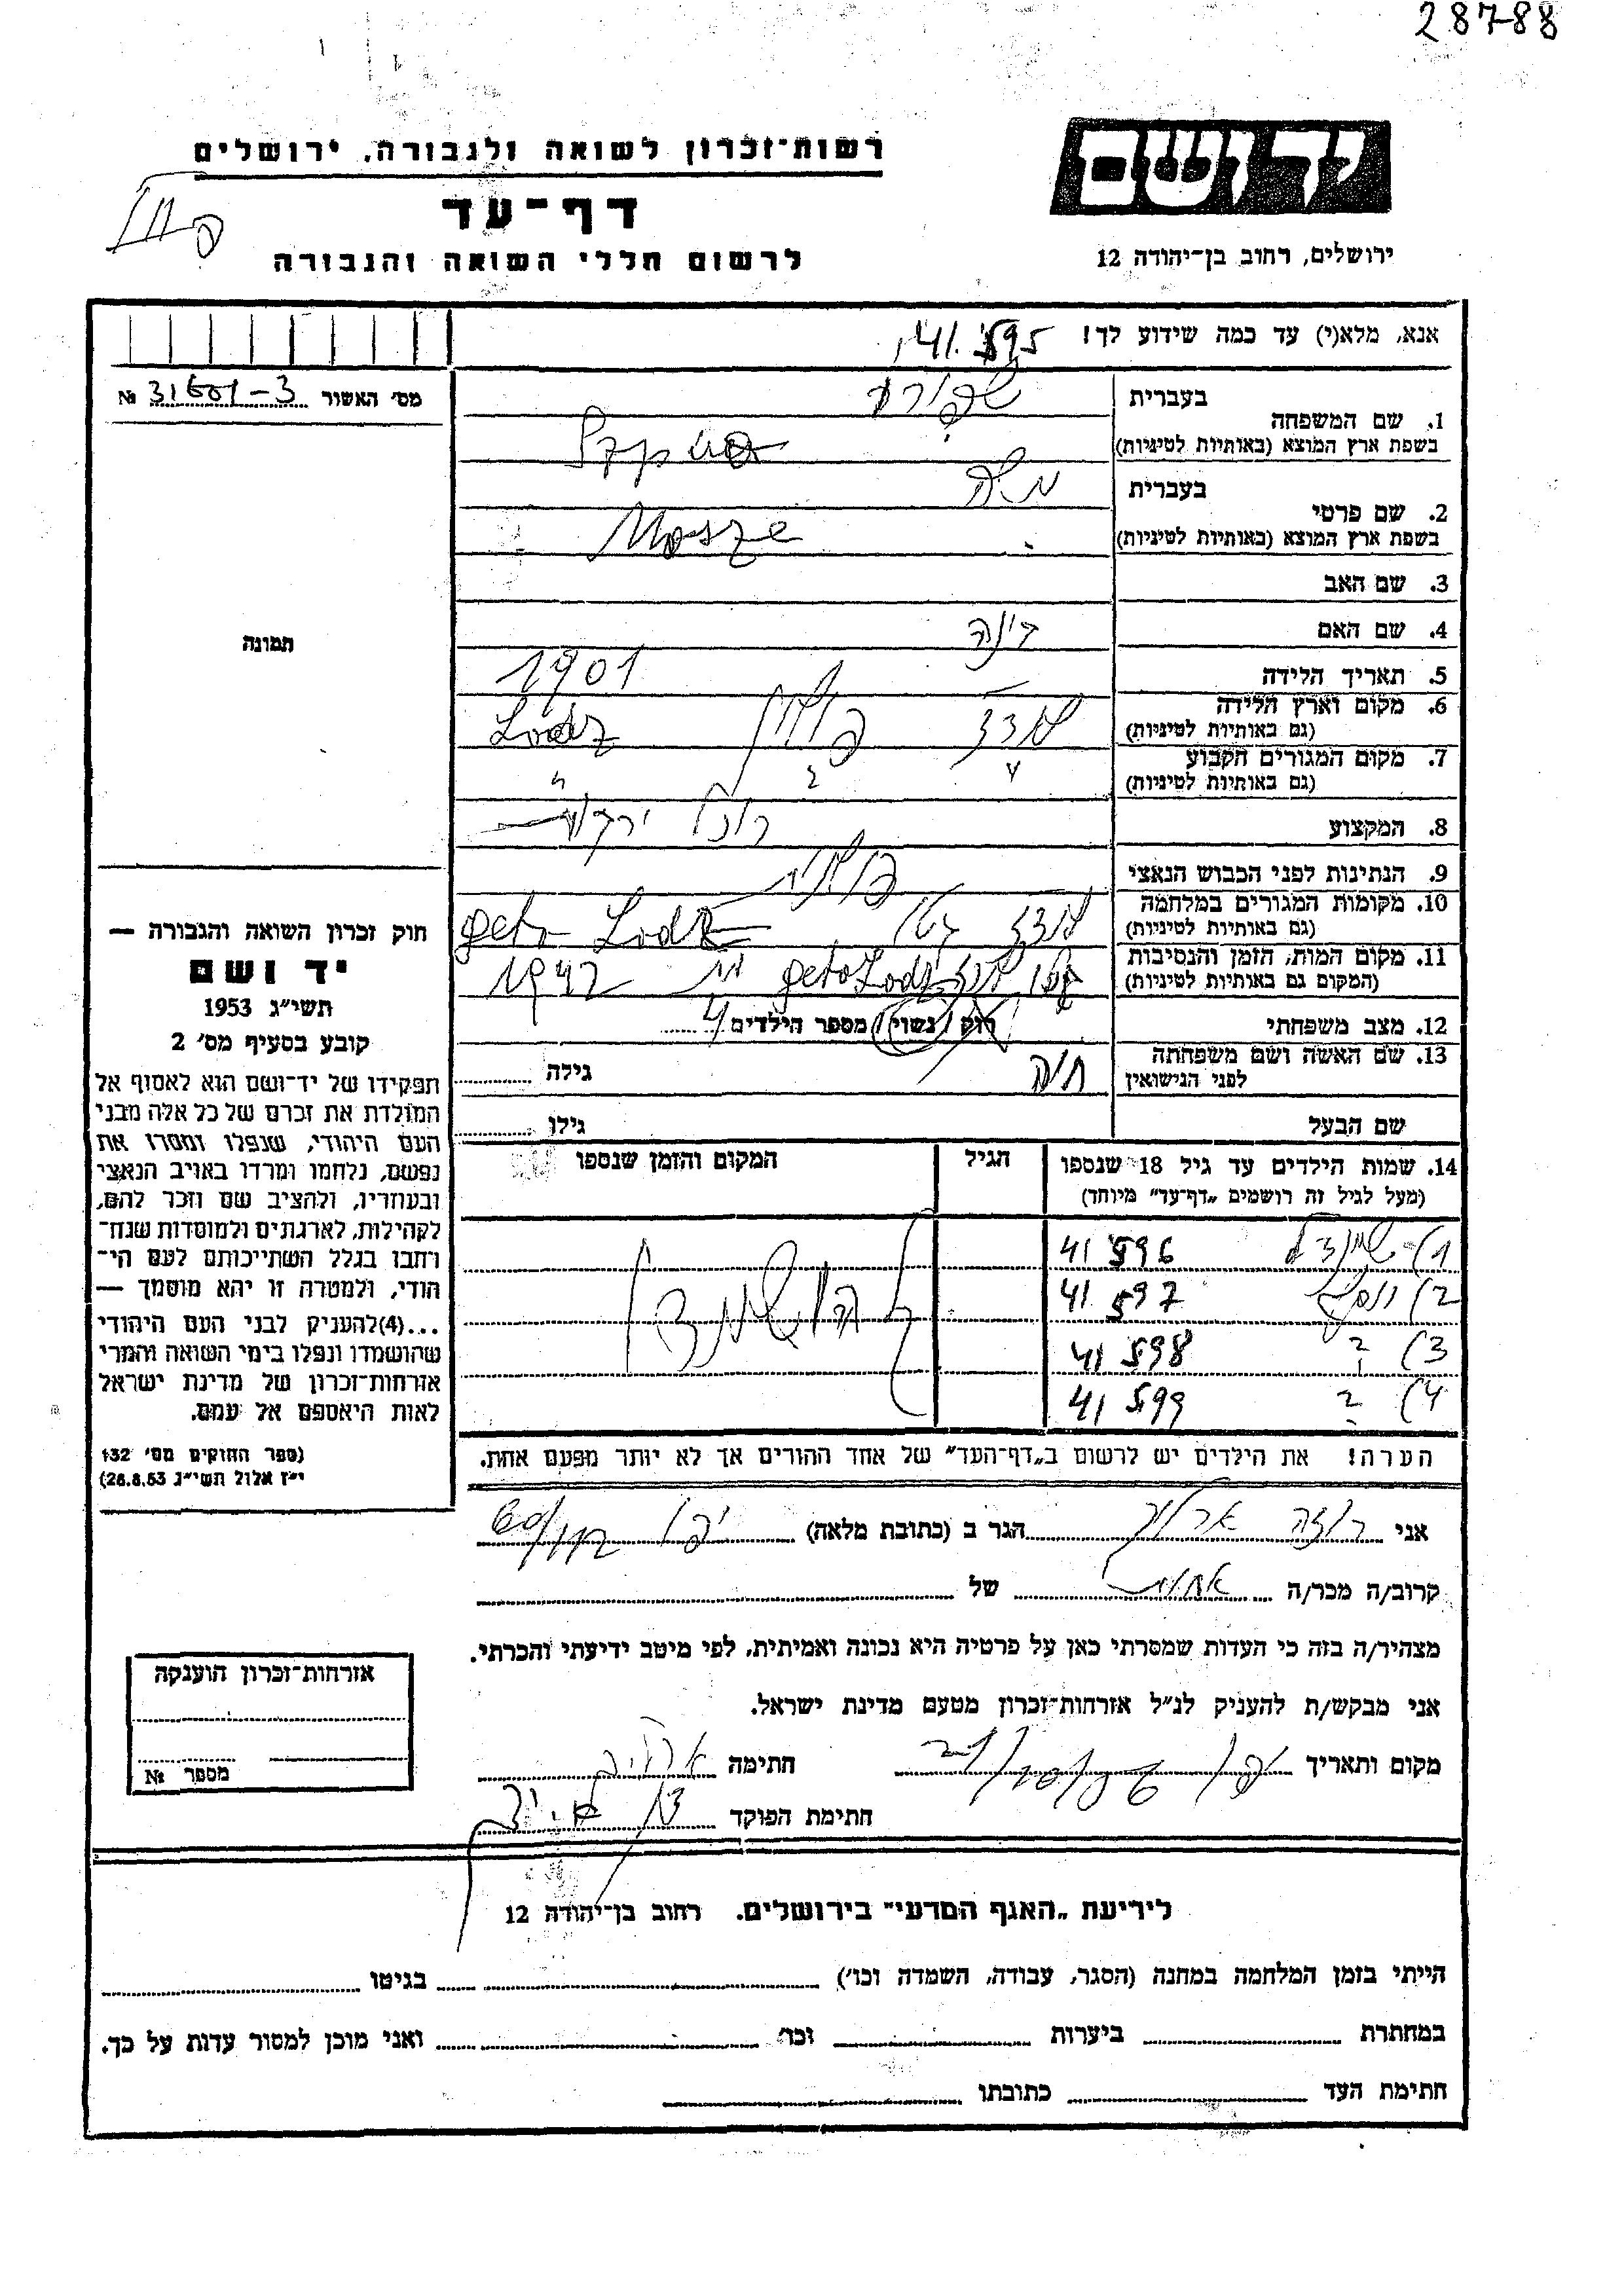 28788
רשות־זכרון לשואה ולגבורה, ירושלים
דף־עד
לרשום חללי השואה והגבורה
יד ושם
ירושלים, רחוב בן־יהודה 12
אנא, מלא(י) עד כמה שידוע לך! 41.595
מס׳ האשור 31601-3 №
תמונה
1. שם המשפחה
בעברית
בשפת ארץ המוצא (באותיות לטיניות)
2. שם פרטי
בעברית משה
בשפת ארץ המוצא (באותיות לטיניות) Mosze
3. שם האב
4. שם האם דינה
5. תאריך הלידה 1901
6. מקום וארץ הלידה
(גם באותיות לטיניות) לודז פולין Lodz
7. מקום המגורים הקבוע
(גם באותיות לטיניות) " " "
8. המקצוע רוכל ירקות
9. הנתינות לפני הכבוש הנאצי פולנית
10. מקומות המגורים במלחמה
(גם באותיות לטיניות) לודז גטו geto Lodz
11. מקום המות, הזמן והנסיבות
(המקום גם באותיות לטיניות) גטו לודז geto Lodz 1942
12. מצב משפחתי רווק / נשוי / מספר הילדים 4
13. שם האשה ושם משפחתה
לפני הנישואין חיה גילה
שם הבעל גילו
14. שמות הילדים עד גיל 18 שנספו
(מעל לגיל זה רושמים „דף־עד״ מיוחד)
הגיל
המקום והזמן שנספו
1) שיינדל 41 596
2) יוסף 41 597
3) ? 41 598
4) ? 41 599
הערה! את הילדים יש לרשום ב„דף־העד״ של אחד ההורים אך לא יותר מפעם אחת.
חוק זכרון השואה והגבורה —
יד ושם
תשי״ג 1953
קובע בסעיף מס׳ 2
תפקידו של יד־ושם הוא לאסוף אל
המולדת את זכרם של כל אלה מבני
העם היהודי, שנפלו ומסרו את
נפשם, נלחמו ומרדו באויב הנאצי
ובעוזריו, ולהציב שם וזכר להם,
לקהילות, לארגונים ולמוסדות שנח־
רחבו בגלל השתייכותם לעם הי־
הודי, ולמטרה זו יהא מוסמך —
...(4)להעניק לבני העם היהודי
שהושמדו ונפלו בימי השואה והמרי
אזרחות־זכרון של מדינת ישראל
לאות היאספם אל עמם.
(ספר החוקים מס׳ 132
י״ז אלול תשי״ג 28.8.53)
אני רוזה הגר ב (כתובת מלאה) יפו
קרוב/ה מכר/ה אחות של
מצהיר/ה בזה כי העדות שמסרתי כאן על פרטיה היא נכונה ואמיתית, לפי מיטב ידיעתי והכרתי.
אני מבקש/ת להעניק לנ״ל אזרחות־זכרון מטעם מדינת ישראל.
מקום ותאריך יפו חתימה
חתימת הפוקד
אזרחות־זכרון הוענקה
מספר №
לידיעת „האגף המדעי״ בירושלים. רחוב בן־יהודה 12
הייתי בזמן המלחמה במחנה (הסגר, עבודה, השמדה וכו׳) בגיטו
במחתרת ביערות וכו׳ ואני מוכן למסור עדות על כך.
חתימת העד כתובתו